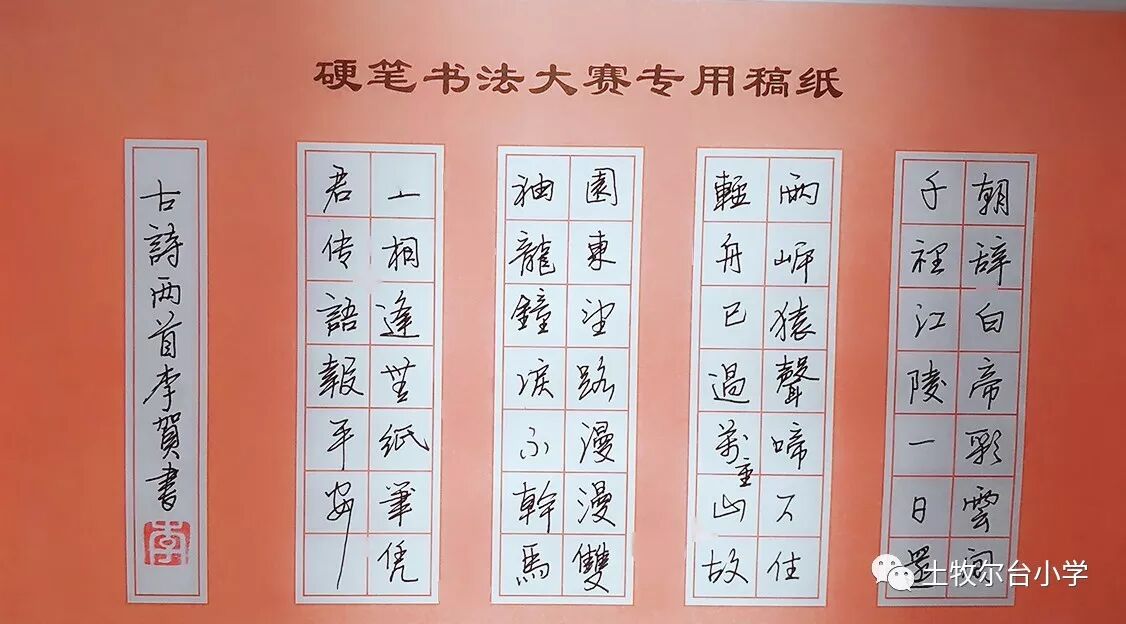 硬笔书法大赛专用稿纸
朝辞白帝彩雲间
千裡江陵一日還
兩岸猿聲啼不住
輕舟已過萬重山故
園東望路漫漫雙
袖龍鐘涙不幹馬
上相逢無紙筆凭
君传語報平安
古詩两首李賀書
李
土牧尔台小学